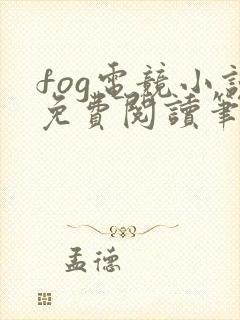 fog電競小說
免費閱讀筆
孟德